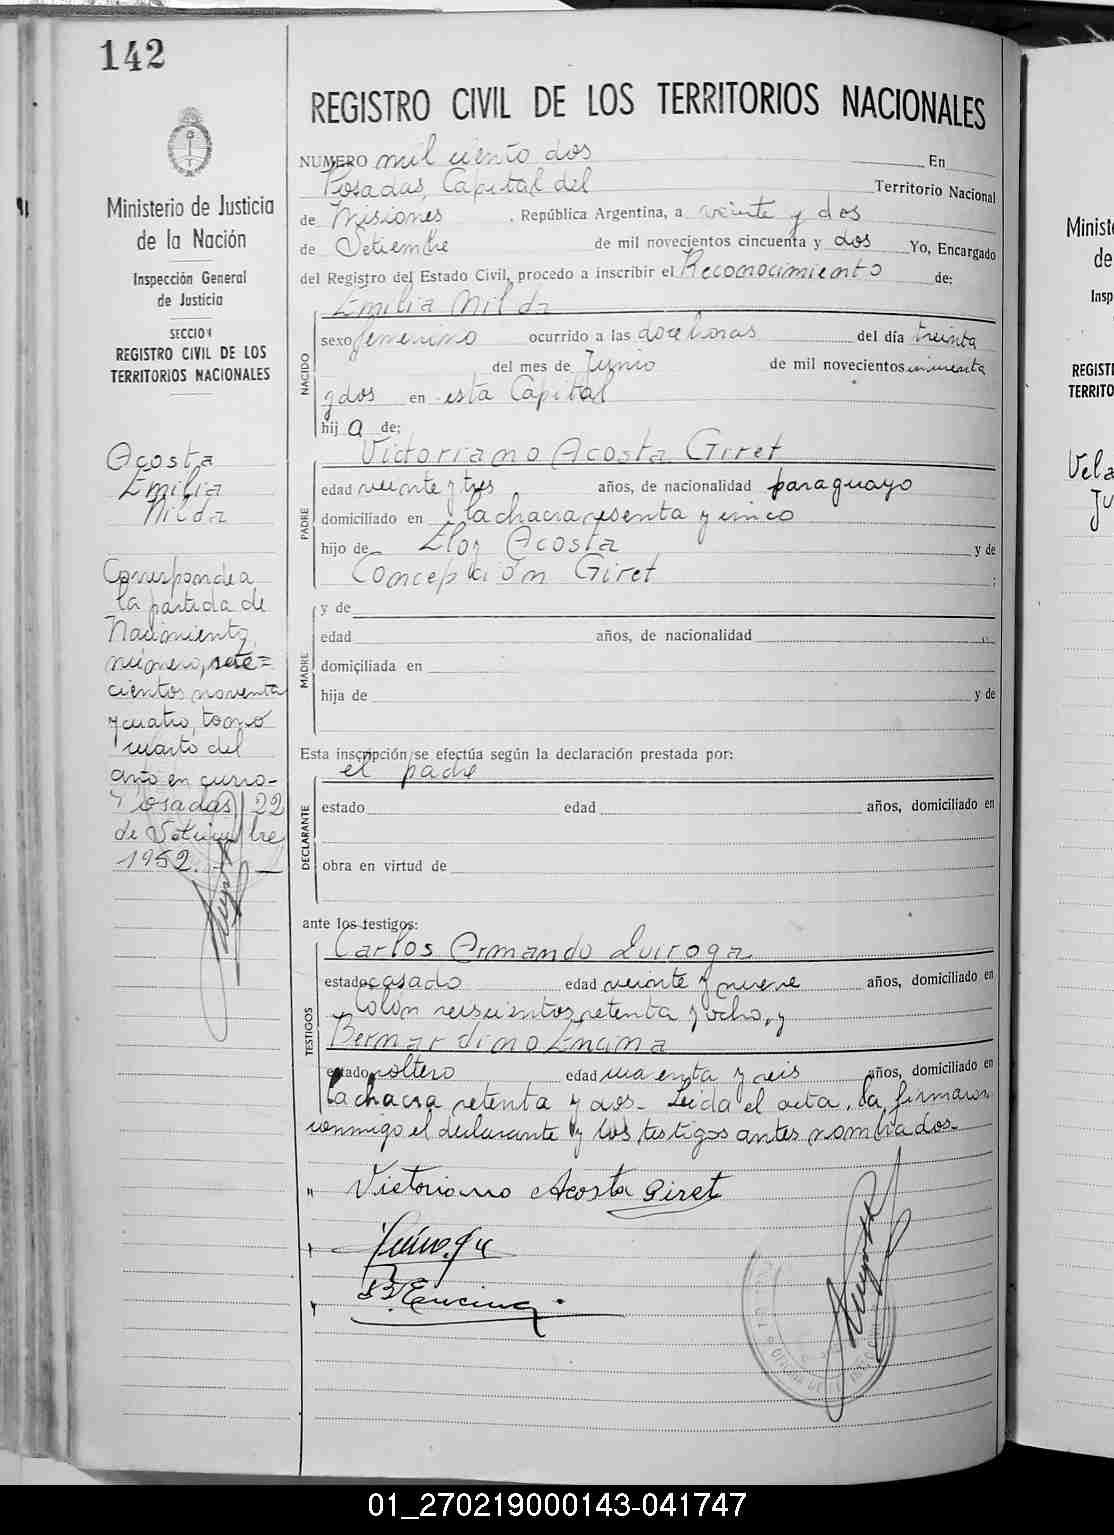 142
REGISTRO CIVIL DE LOS TERRITORIOS NACIONALES
Ministerio de Justicia
de la Nación
Inspección General
de Justicia
SECCION
REGISTRO CIVIL DE LOS
TERRITORIOS NACIONALES
Acosta
Emilia
Nilda
Corresponde a
la partida de
Nacimiento
número, sete=
cientos noventa
y cuatro, tomo
cuarto del
año en curso-
Posadas, 22
de Setiembre
1952.
NUMERO mil ciento dos En
Posadas, Capital del Territorio Nacional
de Misiones , República Argentina, a veinte y dos
de Setiembre de mil novecientos cincuenta y dos Yo, Encargado
del Registro del Estado Civil, procedo a inscribir el Reconocimiento de:
Emilia Nilda
NACIDO
sexo femenino ocurrido a las doce horas del día treinta
del mes de Junio de mil novecientos cincuenta
y dos en esta Capital
hij a de:
Victoriano Acosta Giret
PADRE
edad veinte y tres años, de nacionalidad paraguayo
domiciliado en la chacra sesenta y cinco
hijo de Eloy Acosta y de
Concepción Giret ;
MADRE
y de
edad años, de nacionalidad
domiciliada en
hija de y de
Esta inscripción se efectúa según la declaración prestada por:
el padre
DECLARANTE
estado edad años, domiciliado en
obra en virtud de
ante los testigos:
Carlos Armando Quiroga
TESTIGOS
estado casado edad veinte y nueve años, domiciliado en
Colón seiscientos setenta y ocho, y
Bernardino Encina
estado soltero edad cuarenta y seis años, domiciliado en
la chacra setenta y dos- Leida el acta, la firmaron
conmigo el declarante y los testigos antes nombrados-
Victoriano Acosta Giret
Quiroga
B. Encina
Ministe
de
Insp
REGISTI
TERRITO
Vela
Ju
01_270219000143-041747